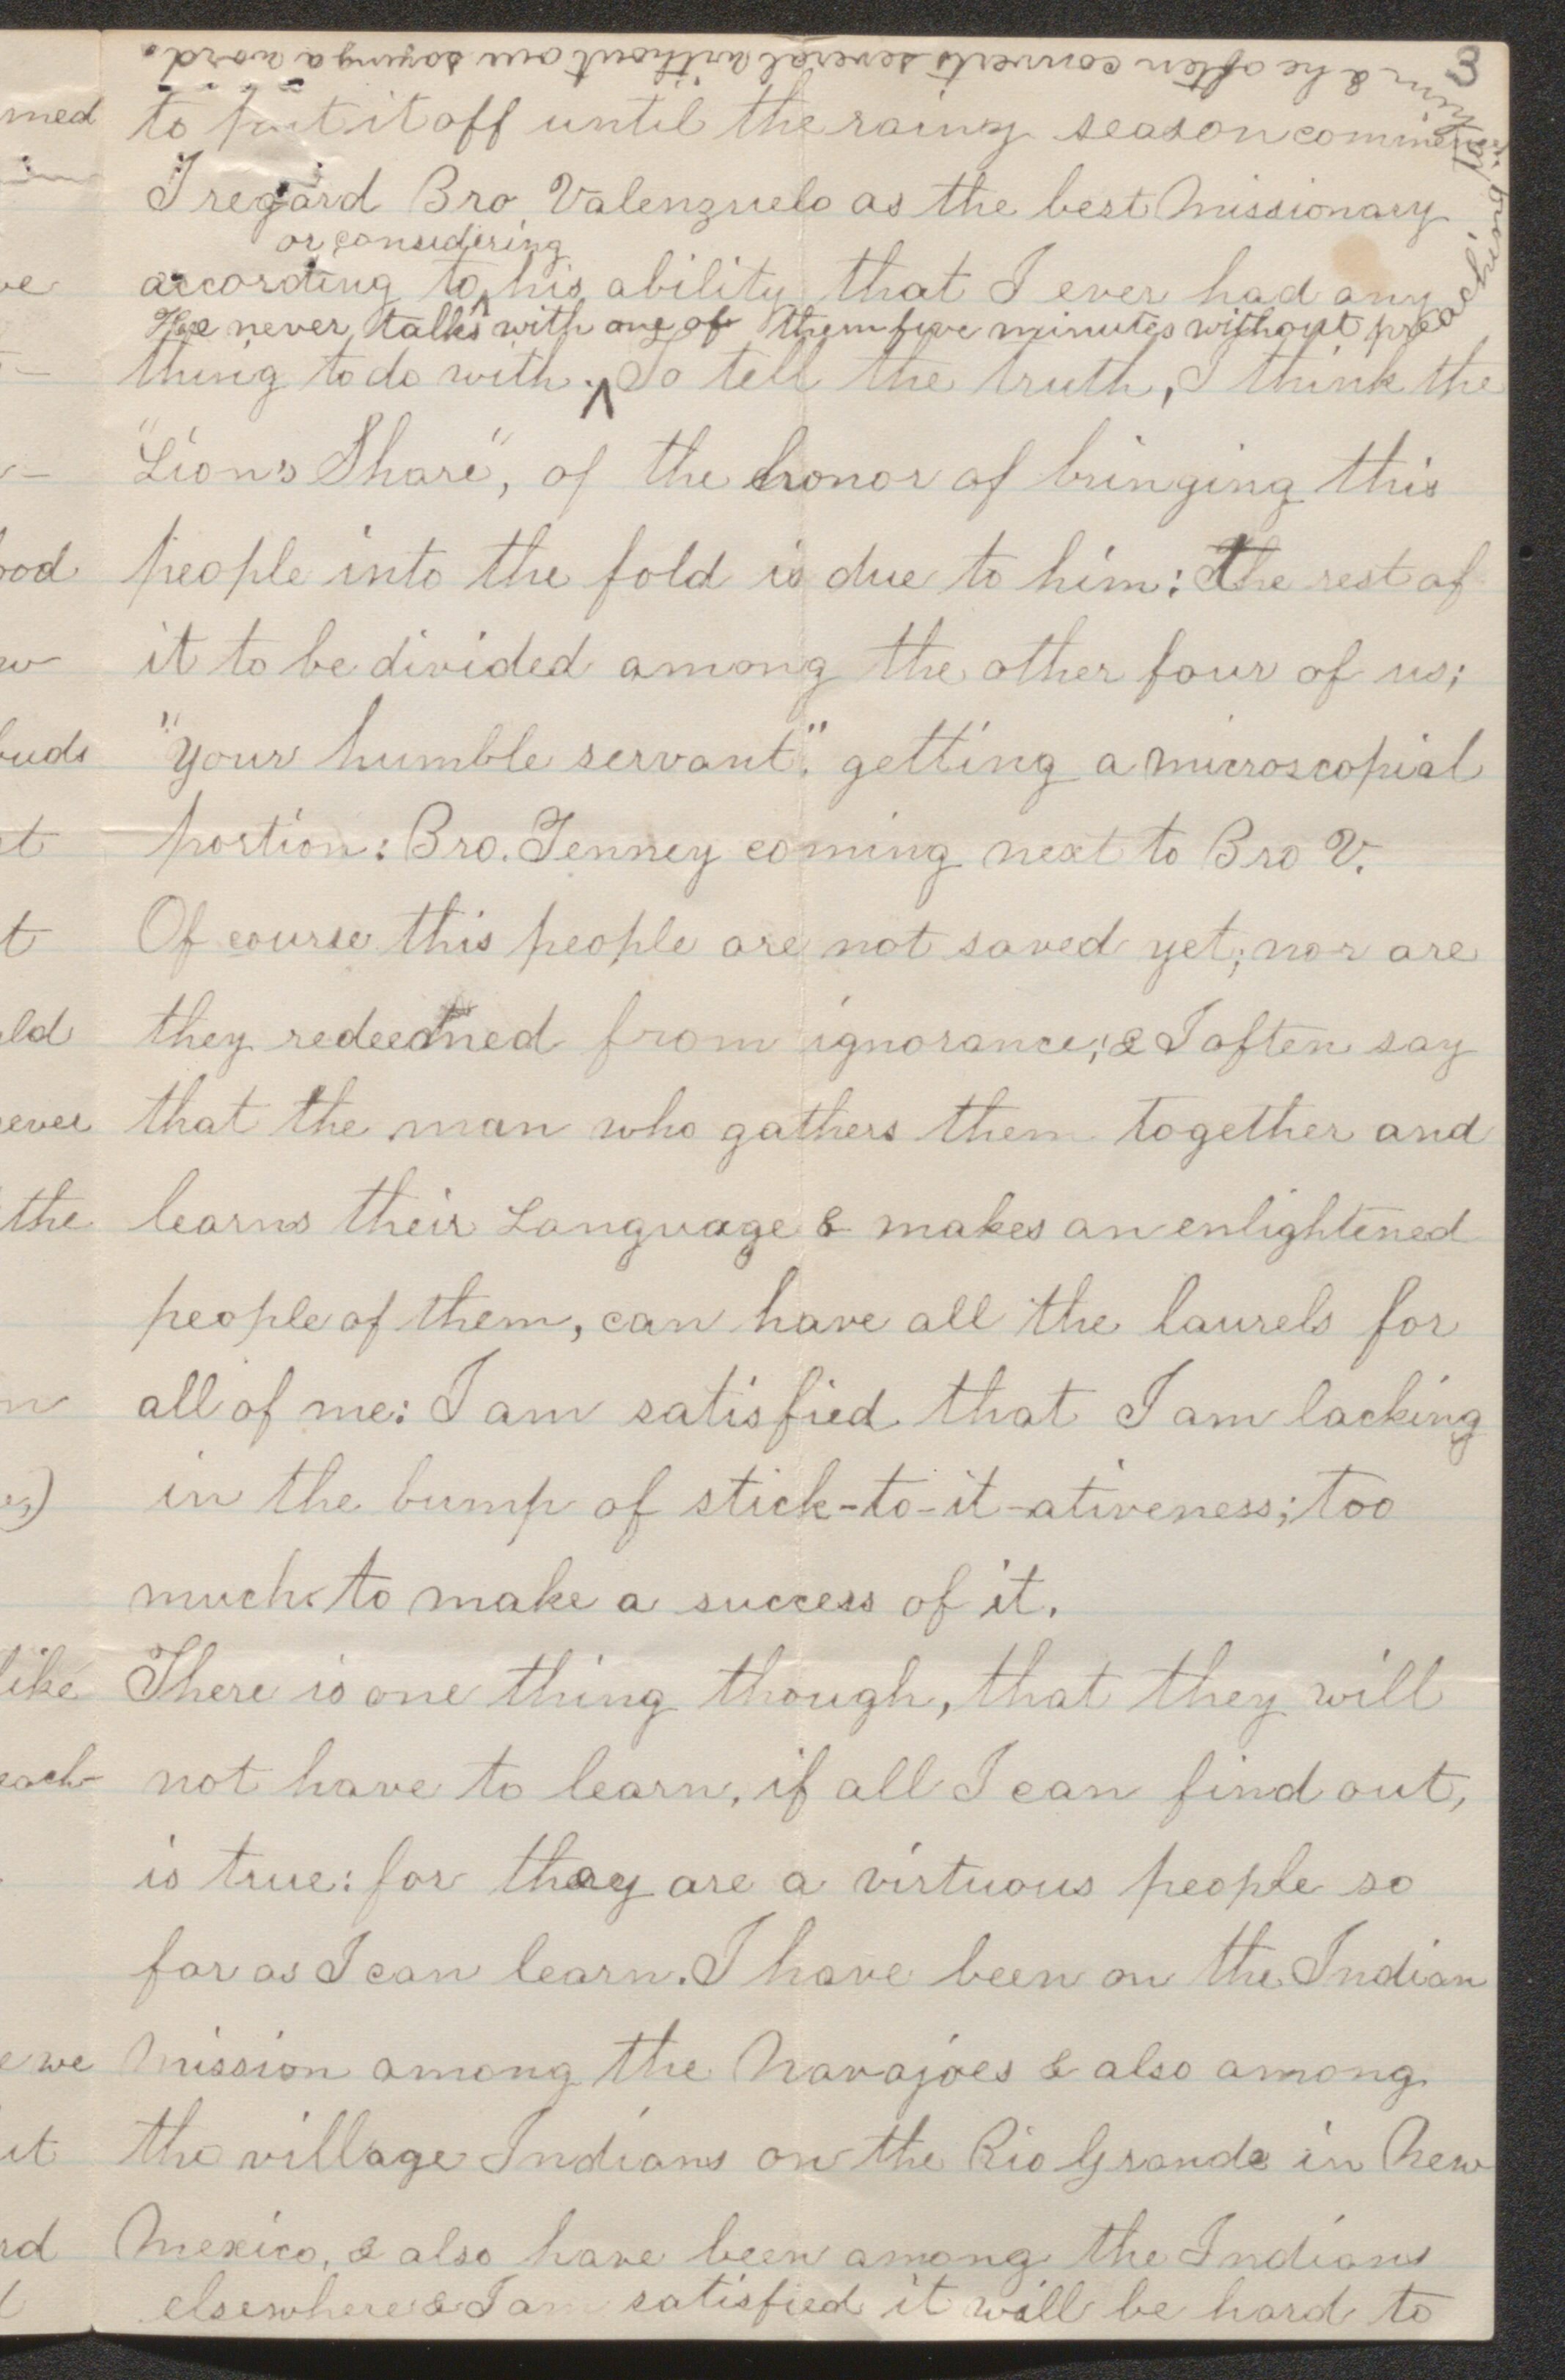 3
to put it off until the rainy season commences.
I regard Bro. Valenzuelo as the best Missionary
or considering
according to ^ his ability that I ever had any
He never talks with one of them five minutes without preaching to him & he often converts several without our saying a word.
thing to do with. ^ To tell the truth, I think the
"Lion's Share", of the honor of bringing this
people into the fold is due to him: The rest of
it to be divided among the other four of us;
"Your humble servant." getting a microscopial
portion: Bro. Tenney coming next to Bro V.
Of course this people are not saved yet; nor are
they redeemed from ignorance; & I often say
that the man who gathers them together and
learns their Language & makes an enlightened
people of them, can have all the laurels for
all of me: I am satisfied that I am lacking
in the bump of stick-to-it-ativeness; too
much to make a success of it.
There is one thing though, that they will
not have to learn, if all I can find out,
is true: for they are a virtuous people so
far as I can learn. I have been on the Indian
Mission among the Navajoes & also among
the village Indians on the Rio Grande in New
Mexico, & also have been among the Indians
elsewhere & I am satisfied it will be hard to
med
ve
ood
w
buds
et
t
ld
ever
the
n
es,)
like
each-
e we
it
rd